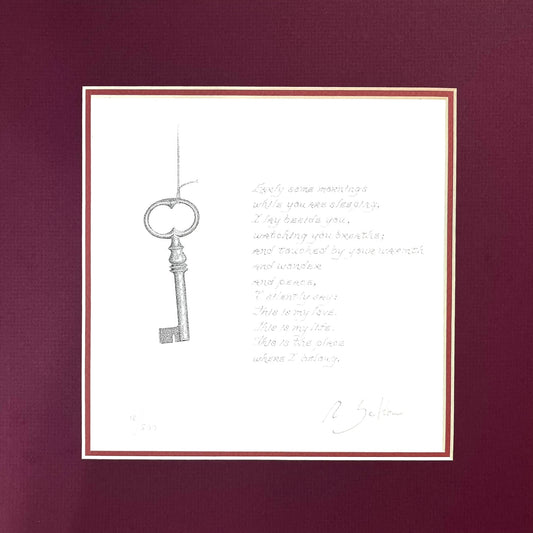 Early some mornings
while you are sleeping,
I lay beside you,
watching you breathe;
and touched by your warmth
and wonder
and peace,
I silently say:
this is my love.
this is my life.
this is the place
where I belong.